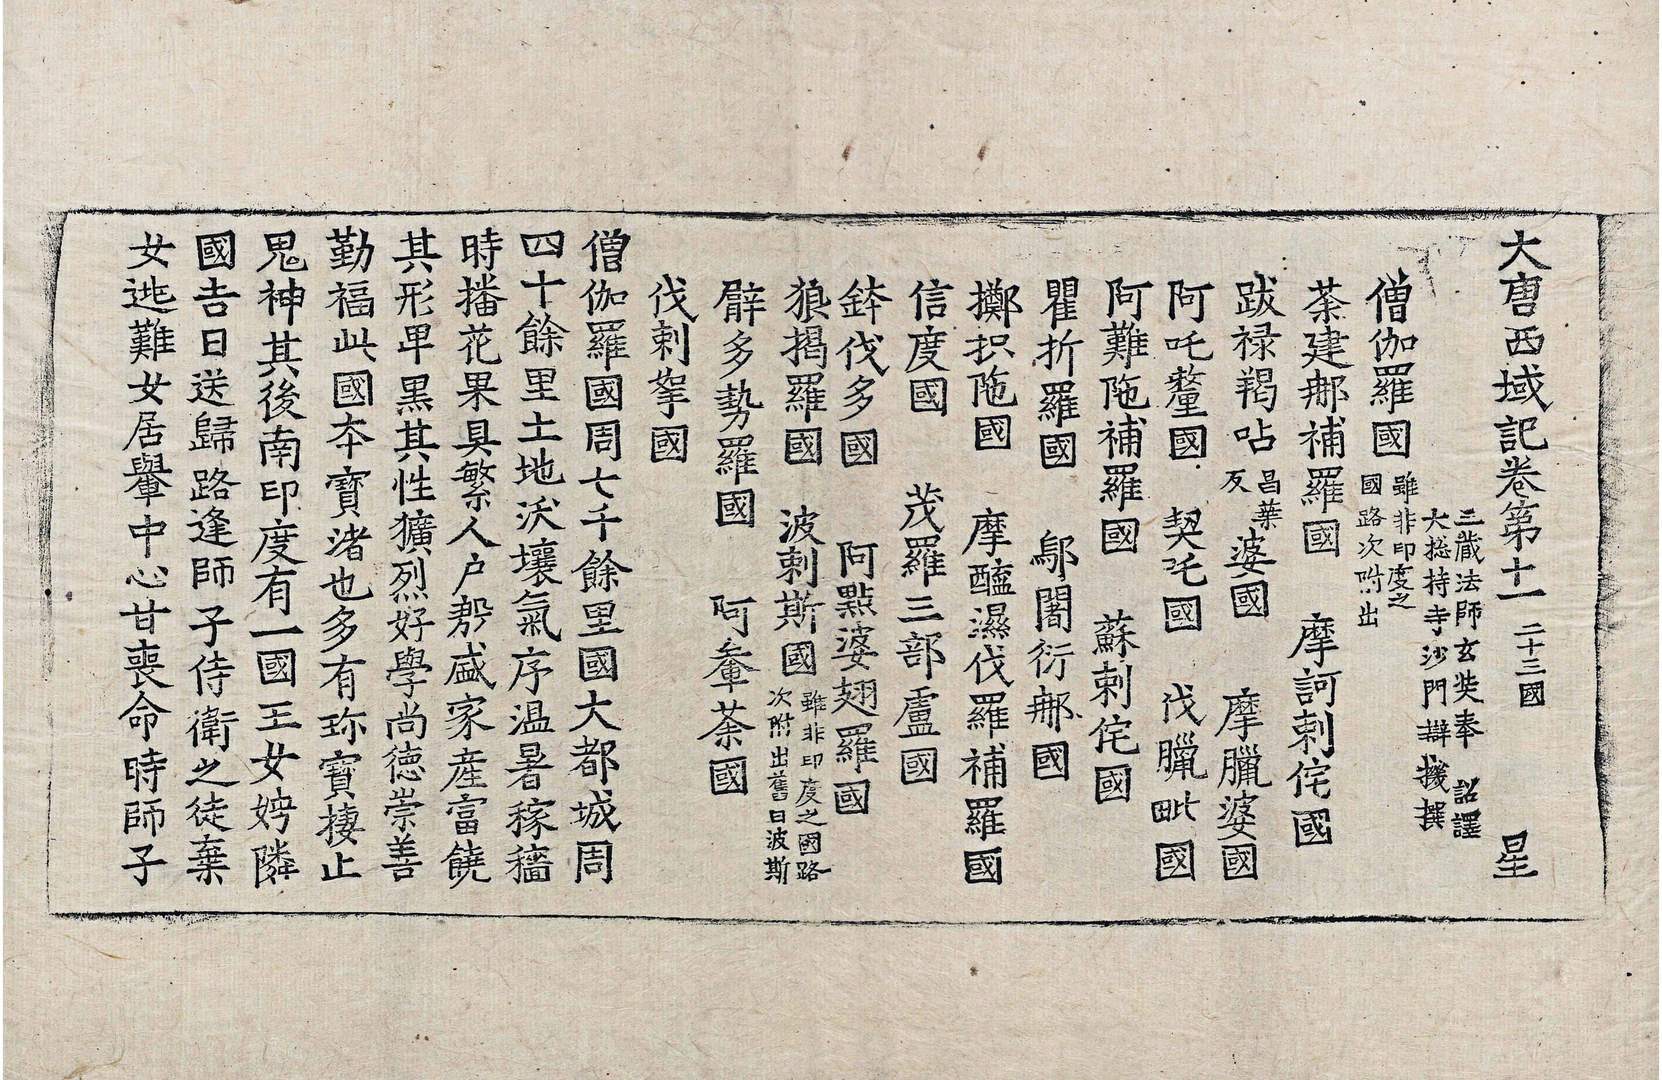 大唐西域記卷第十一 二十三國 星
三藏法師玄奘奉 詔譯
大揔持寺沙門辯機撰
僧伽羅國 雖非印度之
國路次附出
荼建那補羅國 摩訶剌侘國
跋禄羯呫 昌葉
反 婆國 摩臘婆國
阿吒釐國 契吒國 伐臘毗國
阿難陁補羅國 蘇剌侘國
瞿折羅國 鄔闍衍那國
擲枳陁國 摩醯濕伐羅補羅國
信度國 茂羅三部盧國
鉢伐多國 阿㸃婆翅羅國
狼揭羅國 波剌斯國 雖非印度之國路
次附出舊曰波斯
臂多勢羅國 阿軬荼國
伐剌拏國
僧伽羅國周七千餘里國大都城周
四十餘里土地沃壤氣序温暑稼穡
時播花果具繁人户殷盛家産富饒
其形卑黑其性獷烈好學尚德崇善
勤福此國本寶渚也多有珎寶棲止
鬼神其後南印度有一國王女娉隣
國吉日送歸路逢師子侍衛之徒棄
女逃難女居轝中心甘喪命時師子